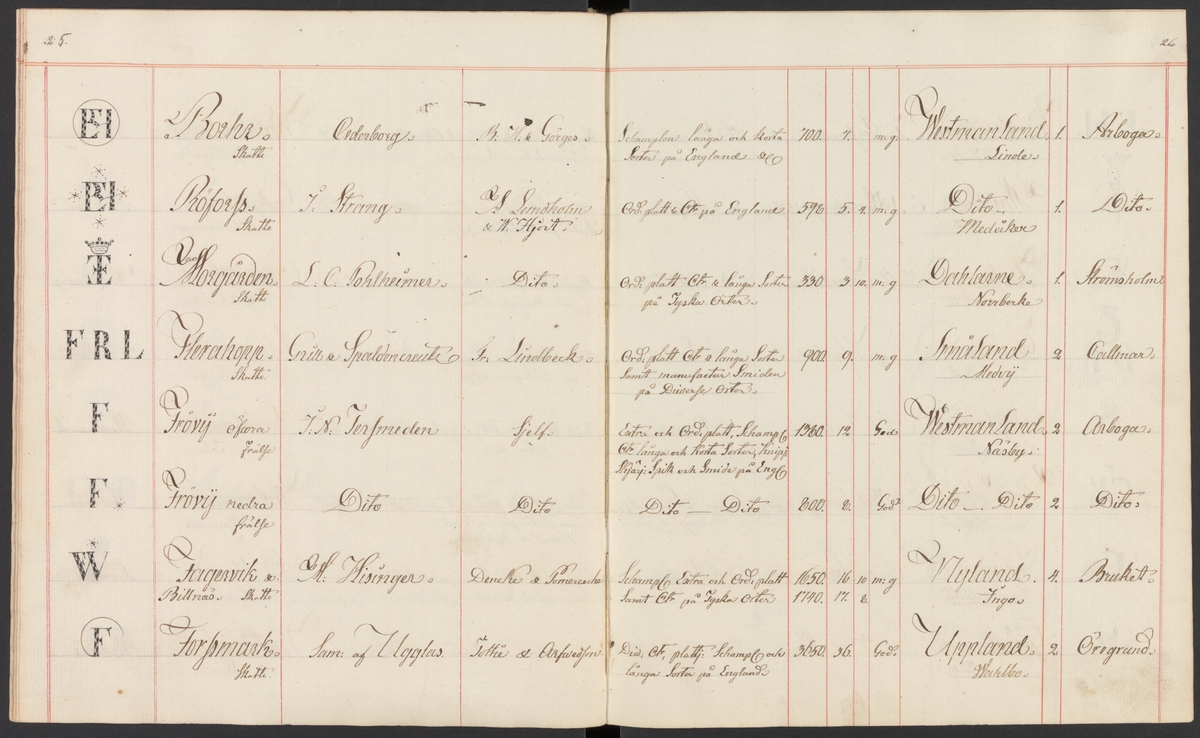 25.
26
EH Boehr. Cederborg. B. H. & Görges. Schamplon långa och korta 700. 7. m: g: Westmanland 1. Arboga.
Skatte Sorter på England &c Linde.
EH Röforss. J. Strang. Lindholm Ord: platt & Ctr på England 596 5. 4. m: g Dito 1. Dito.
Skatte & W. Hjort. Medåker
Morgården. L. C. Pohlheimer. Dito. Ord: platt Ctr & långa Sorter 330 3 10. m: g Dahlarne 1. Strömsholm
Skatte på Tyska Orter. Norrberke
F R L Flerahopp. Grill & Spaldencreutz Fr. Lindbeck. Ord: platt Ctr & långa Sorter 900. 9. m: g Småland 2 Callmar.
Skatte Samt manufactur Smiden Medvij
på Diverse Orter.
F Frövij öfvra J. N. Tersmeden Sjelf. Extra och Ord: platt, Schamp 1360. 12 God Westmanland. 2 Arboga.
frälse Ctr långa och korta Sorter, Knipp Näsby.
Spik och Smide på Eng
F Frövij nedra Dito Dito Dito — Dito 800. 8. God Dito — Dito 2 Dito.
frälse
W Fagervik & M: Hisinger. Dencke & Pomeresche Schamp Extra och Ord: platt 1650. 16 10 m: g Nyland. 4. Bruket.
Billnäs. Skatte Samt Ctr på Tyska Orter 1740. 17. 8. Ingo.
F Forssmark. Sam: af Ugglas. Tottie & Arfwedson Div: Ctr, platt: Schamp och 3650. 36. God. Uppland. 2 Öregrund.
Skatte. långa Sorter på England. Wahlbo.